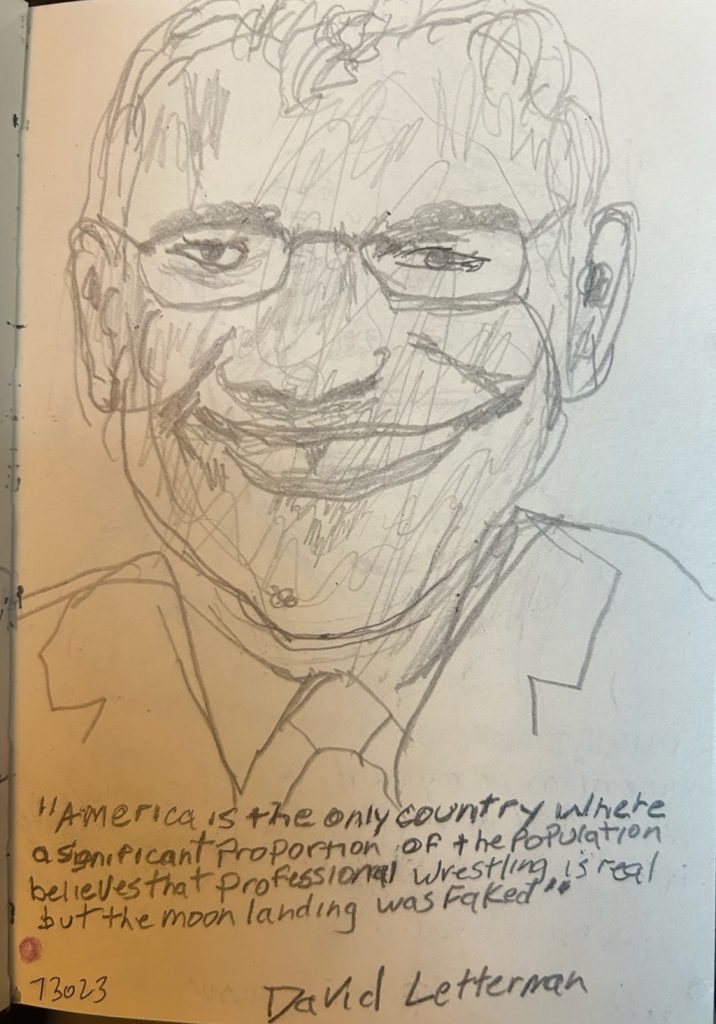 "America is the only country where
a significant proportion of the population
believes that professional wrestling is real
but the moon landing was faked"
73023
David Letterman